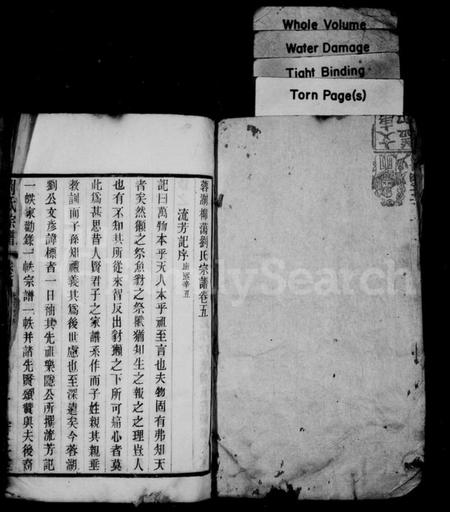 Whole Volume
Water Damage
Tight Binding
Torn Page(s)
蓉湖柳蕩劉氏宗譜卷五
流芳記序
記曰萬物本乎天人本乎祖至言也夫物固有弗知天
者矣然獺之祭魚豺之祭獸猶知生之報之之理豈人
也有不知其所從來智反出豺獺之下所可痛心者莫
此爲甚思昔人賢君子之家譜系作而子姓親其親垂
教訓而子孫知禮義其爲後世慮也至深遠矣今蓉湖
劉公文彥諱標者一日捕其先祖樂隱公所撰流芳記
一帙家勸錄一帙宗譜一帙并諸先賢頌贊與夫後裔
劉氏宗譜
FamilySearch